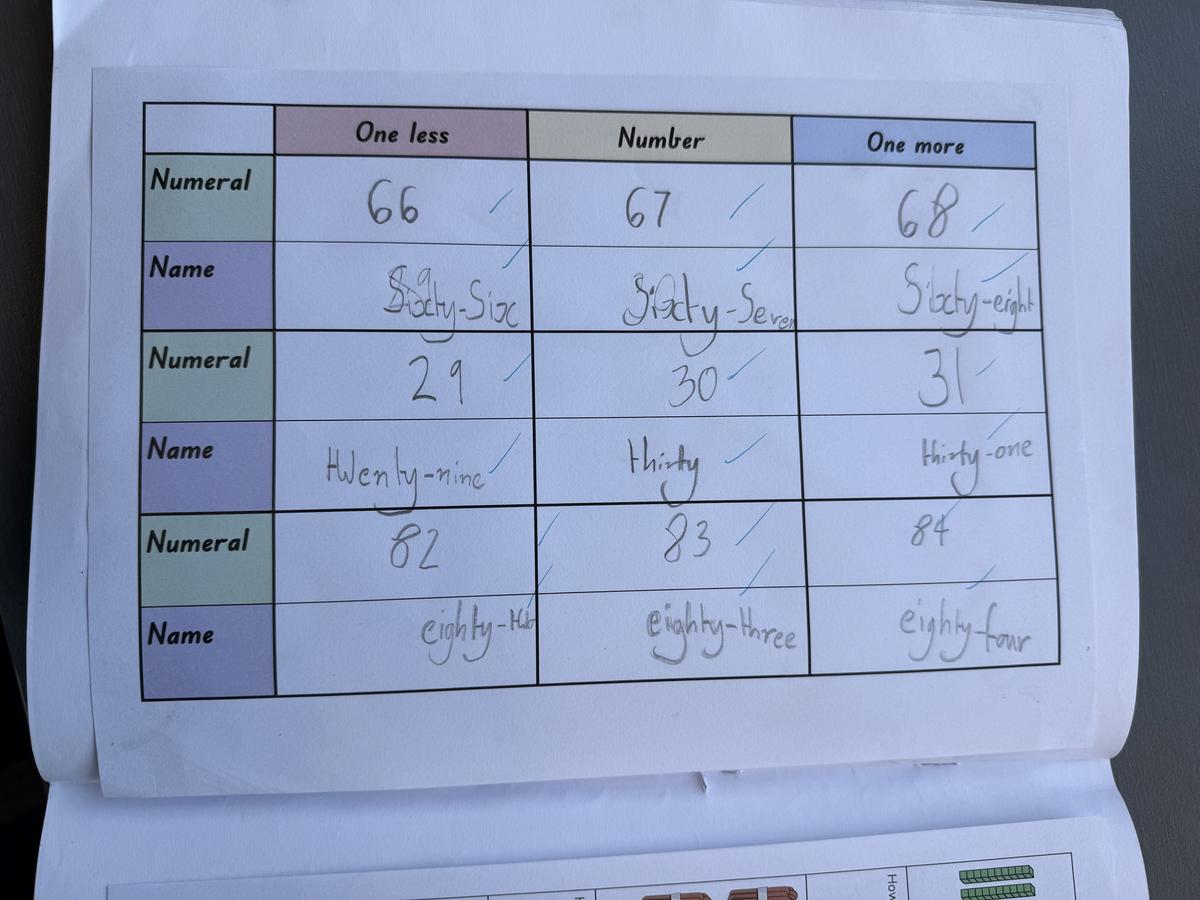 One less Number One more
Numeral 66 67 68
Name Sixty-Six Sixty-Seven Sixty-eight
Numeral 29 30 31
Name twenty-nine thirty thirty-one
Numeral 82 83 84
Name eighty-two eighty-three eighty-four
How